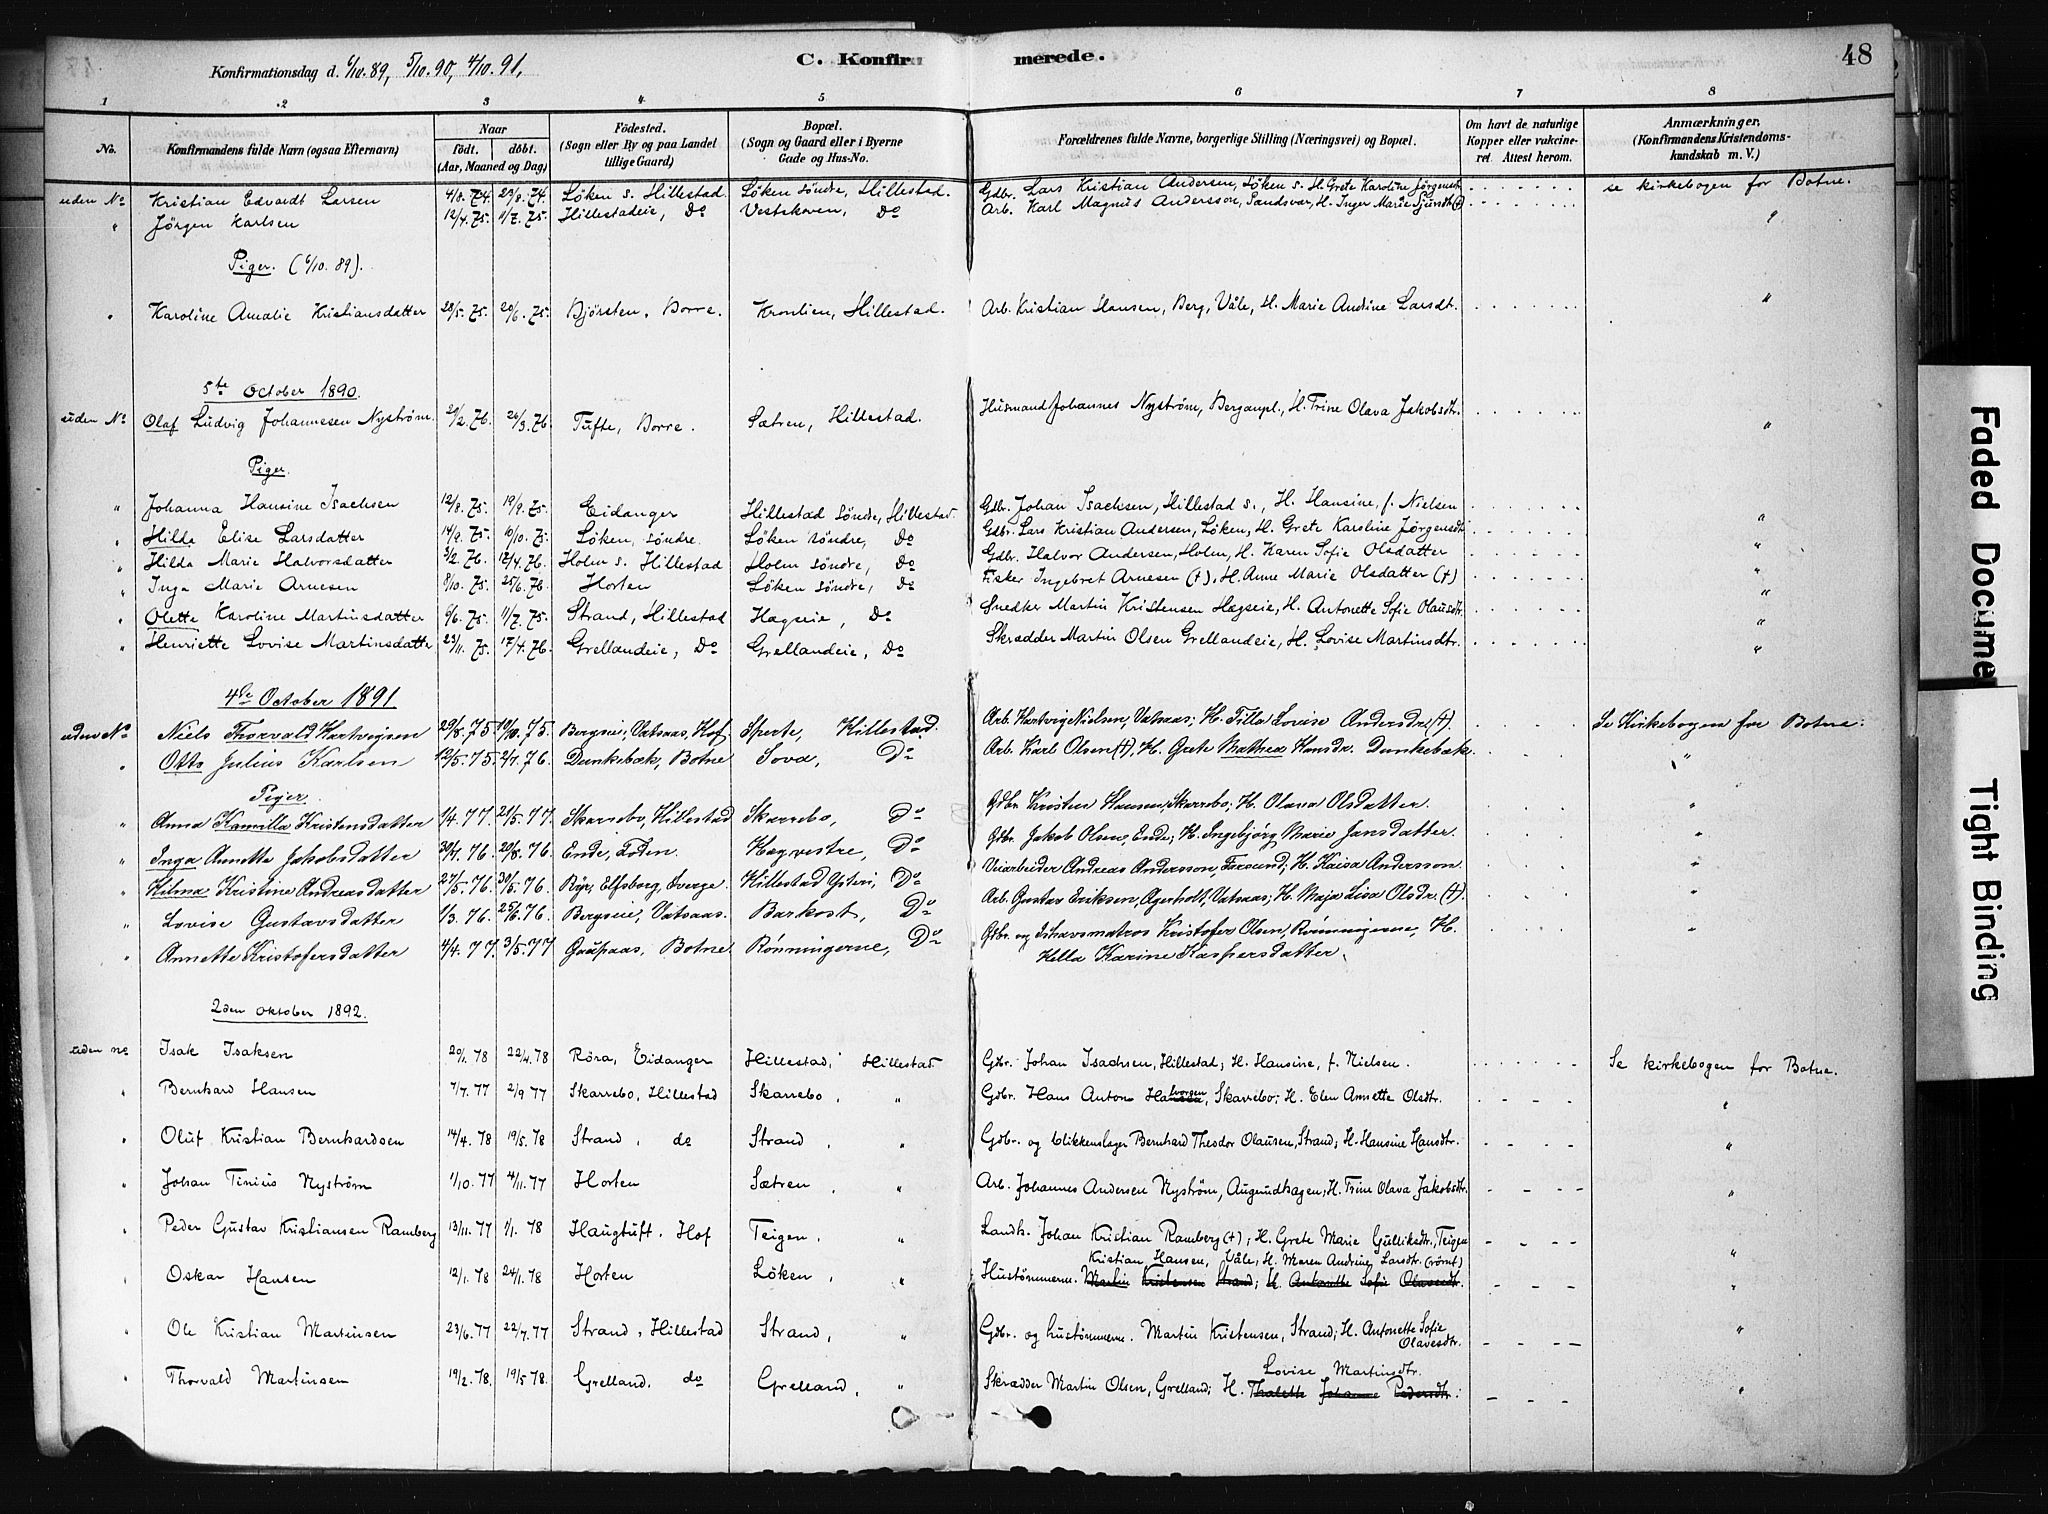 Konfirmationsdag d. 6/10.89, 5/10.90, 4/10.91,
C. Konfirmerede.
48
1 2 3 4 5 6 7 8
No. Konfirmandens fulde Navn (ogsaa Efternavn) Naar født. døbt. (Aar, Maaned og Dag) Födested. (Sogn eller By og paa Landet tillige Gaard) Bopæl. (Sogn og Gaard eller i Byerne Gade og Hus-No. Forældrenes fulde Navne, borgerlige Stilling (Næringsvei) og Bopæl. Om havt de naturlige Kopper eller vakcineret Attest herom. Anmærkninger. (Konfirmandens Kristendomskundskab m. V.)
uden No Kristian Edvardt Larsen 4/8.74. 23/8.74. Löken s. Hillestad Löken söndre, Hillestad. Gdbr. Lars Kristian Andersen, Löken s. H. Grete Karoline Jörgensdt. se kirkebogen for Botne.
" Jörgen Karlsen 12/4.75. 11/7.75. Hillestadeie, Do Vestskoven, Do Arb. Karl Magnus Andersson, Sandsvær, H. Inger Marie (+)
Piger. (6/10.89).
" Karoline Amalie Kristiansdatter 28/5.75. 20/6.75. Bjørsten, Borre. Kronlien, Hillestad. Arb. Kristian Hansen, Berg, Våle, H. Marie Andrine Larsdt. "
5te October 1890.
uden No Olaf Ludvig Johannesen Nyström. 29/2.76. 26/3.76 Tufte, Borre. Sætren, Hillestad. Husmand Johannes Nyström, Berganpl., H. Trine Olava Jakobsdtr. "
Piger.
" Johanna Hansine Isachsen 12/8.75. 19/9.75. Eidanger Hillestad Söndre, Hillestad. Gdbr. Johan Isachsen, Hillestad s., H. Hansine, f. Nielsen "
" Hilda Elise Larsdatter 14/9.75. 10/10.75. Löken, söndre. Löken söndre, Do Gdbr. Lars Kristian Andersen, Löken, H. Grete Karoline Jørgensdt. "
" Hilda Marie Halvorsdatter 3/2.76. 17/4.76. Holm s. Hillestad Holm söndre, Do Gdbr. Halvor Andersen, Holm, H. Karen Sofie Olsdatter "
" Inga Marie Arnesen 8/10.75. 25/6.76. Horten Löken söndre, Do Fisker Ingebret Arnesen (+), H. Anne Marie Olsdatter (+) "
" Olette Karoline Martinsdatter 6/6.75. 11/7.75. Strand, Hillestad Hagseie, Do Snedker Martin Kristensen Hægseie, H. Antonette Sofie Olausdtr. "
" Henriette Lovise Martinsdatter 23/11.75. 17/4.76. Grellandeie, Do Grellandeie, Do Skrædder Martin Olsen Grellandeie, H. Lovise Martinsdtr. "
4de October 1891
uden No Niels Thorvald Hartvigsen 29/8.75. 10/10.75. Bergseie, Vatsaas, Hof. Sperte, Hillestad. Arb. Hartvig Nielsen, Vatsaas; H. Tilla Lovise Andersdr. (+). Se Kirkebogen for Botne.
" Otto Julius Karlsen 12/5.75. 2/7.76. Dunkebæk, Botne Sova, Do Arb. Karl Olsen (+), H. Grete Mathea Hansdr. Dunkebæk. "
Piger.
" Anna Kamilla Kristensdatter 1/4.77. 21/5.77. Skarrebo, Hillestad Skarrebo, Do Gdbr. Kristen Hansen, Skarrebo; H. Olava Olsdatter. "
" Inga Annette Jakobsdatter 30/7.76. 20/8.76. Ende, Loden. Hægvestre, Do Gdbr. Jakob Olsen, Ende; H. Ingebjørg Marie Jansdatter. "
" Hilma Kristine Andreasdatter 27/5.76. 30/5.76. Ryr, Elfsborg, Sverge. Hillestad Ysteri, Do Veiarbeider Andreas Andersson, Forsund; H. Kaisa Andersson. "
" Lovise Gustavsdatter 1/3.76. 25/6.76. Bergseie, Vatsaas. Barkost, Do Arb. Gustav Eriksen, Agerholt, Vatsaas; H. Maja Lisa Olsdr. (+). "
" Annette Kristofersdatter 4/4.77. 31/5.77 Gaupaas, Botne Rönningerne, Do Gdbr. og Ishavsmatros Kristofer Olsen, Rönningerne, H. "
Hella Karine Kaspersdatter.
2den oktober 1892.
uden no Isak Isaksen 20/1.78 22/4.78 Röra, Eidanger Hillestad, Hillestad. Gdbr. Johan Isachsen, Hillestad; H. Hansine, f. Nielsen. Se kirkebogen for Botne.
" Bernhard Hansen 7/7.77 2/9.77 Skarrebo, Hillestad Skarrebo, " Gdbr. Hans Anton Halvorsen, Skarrebo; H. Elen Annette Olsdtr. "
" Oluf Kristian Bernhardsen 14/4.78 19/5.78 Strand, do Strand, " Gdbr. og blikkenslager Bernhard Theodor Olausen, Strand; H. Hansine Hansdtr. "
" Johan Tinius Nyström 1/10.77 4/11.77 Horten Sætren, " Arb. Johannes Andersen Nyström, Augundhagen; H. Trine Olava Jakobsdtr. "
" Peder Gustav Kristiansen Ramberg 13/11.77 1/1.78 Haugtuft, Hof Teigen, " Landh. Johan Kristian Ramberg (+); H. Grete Marie Gulliksdtr., Teigen "
Kristian Hansen, Våle, H. Maren Andrine Larsdtr. (römt)
" Oskar Hansen 12/1.78 24/1.78 Horten Löken, " Hustömmerm. Martin Kristensen Strand; H. Antonette Sofie Olavesdtr. "
" Ole Kristian Martinsen 23/6.77 22/7.77 Strand, Hillestad Strand, " Gdbr. og hustömmerm. Martin Kristensen, Strand; H. Antonette Sofie "
Olavesdtr.
Lovise Martinsdtr.
" Thorvald Martinsen 19/2.78. 19/5.78. Grelland, do Grelland, " Skrædder Martin Olsen, Grelland; H. Thalette Johanne Pedersdtr. "
Faded Docume
Tight Binding